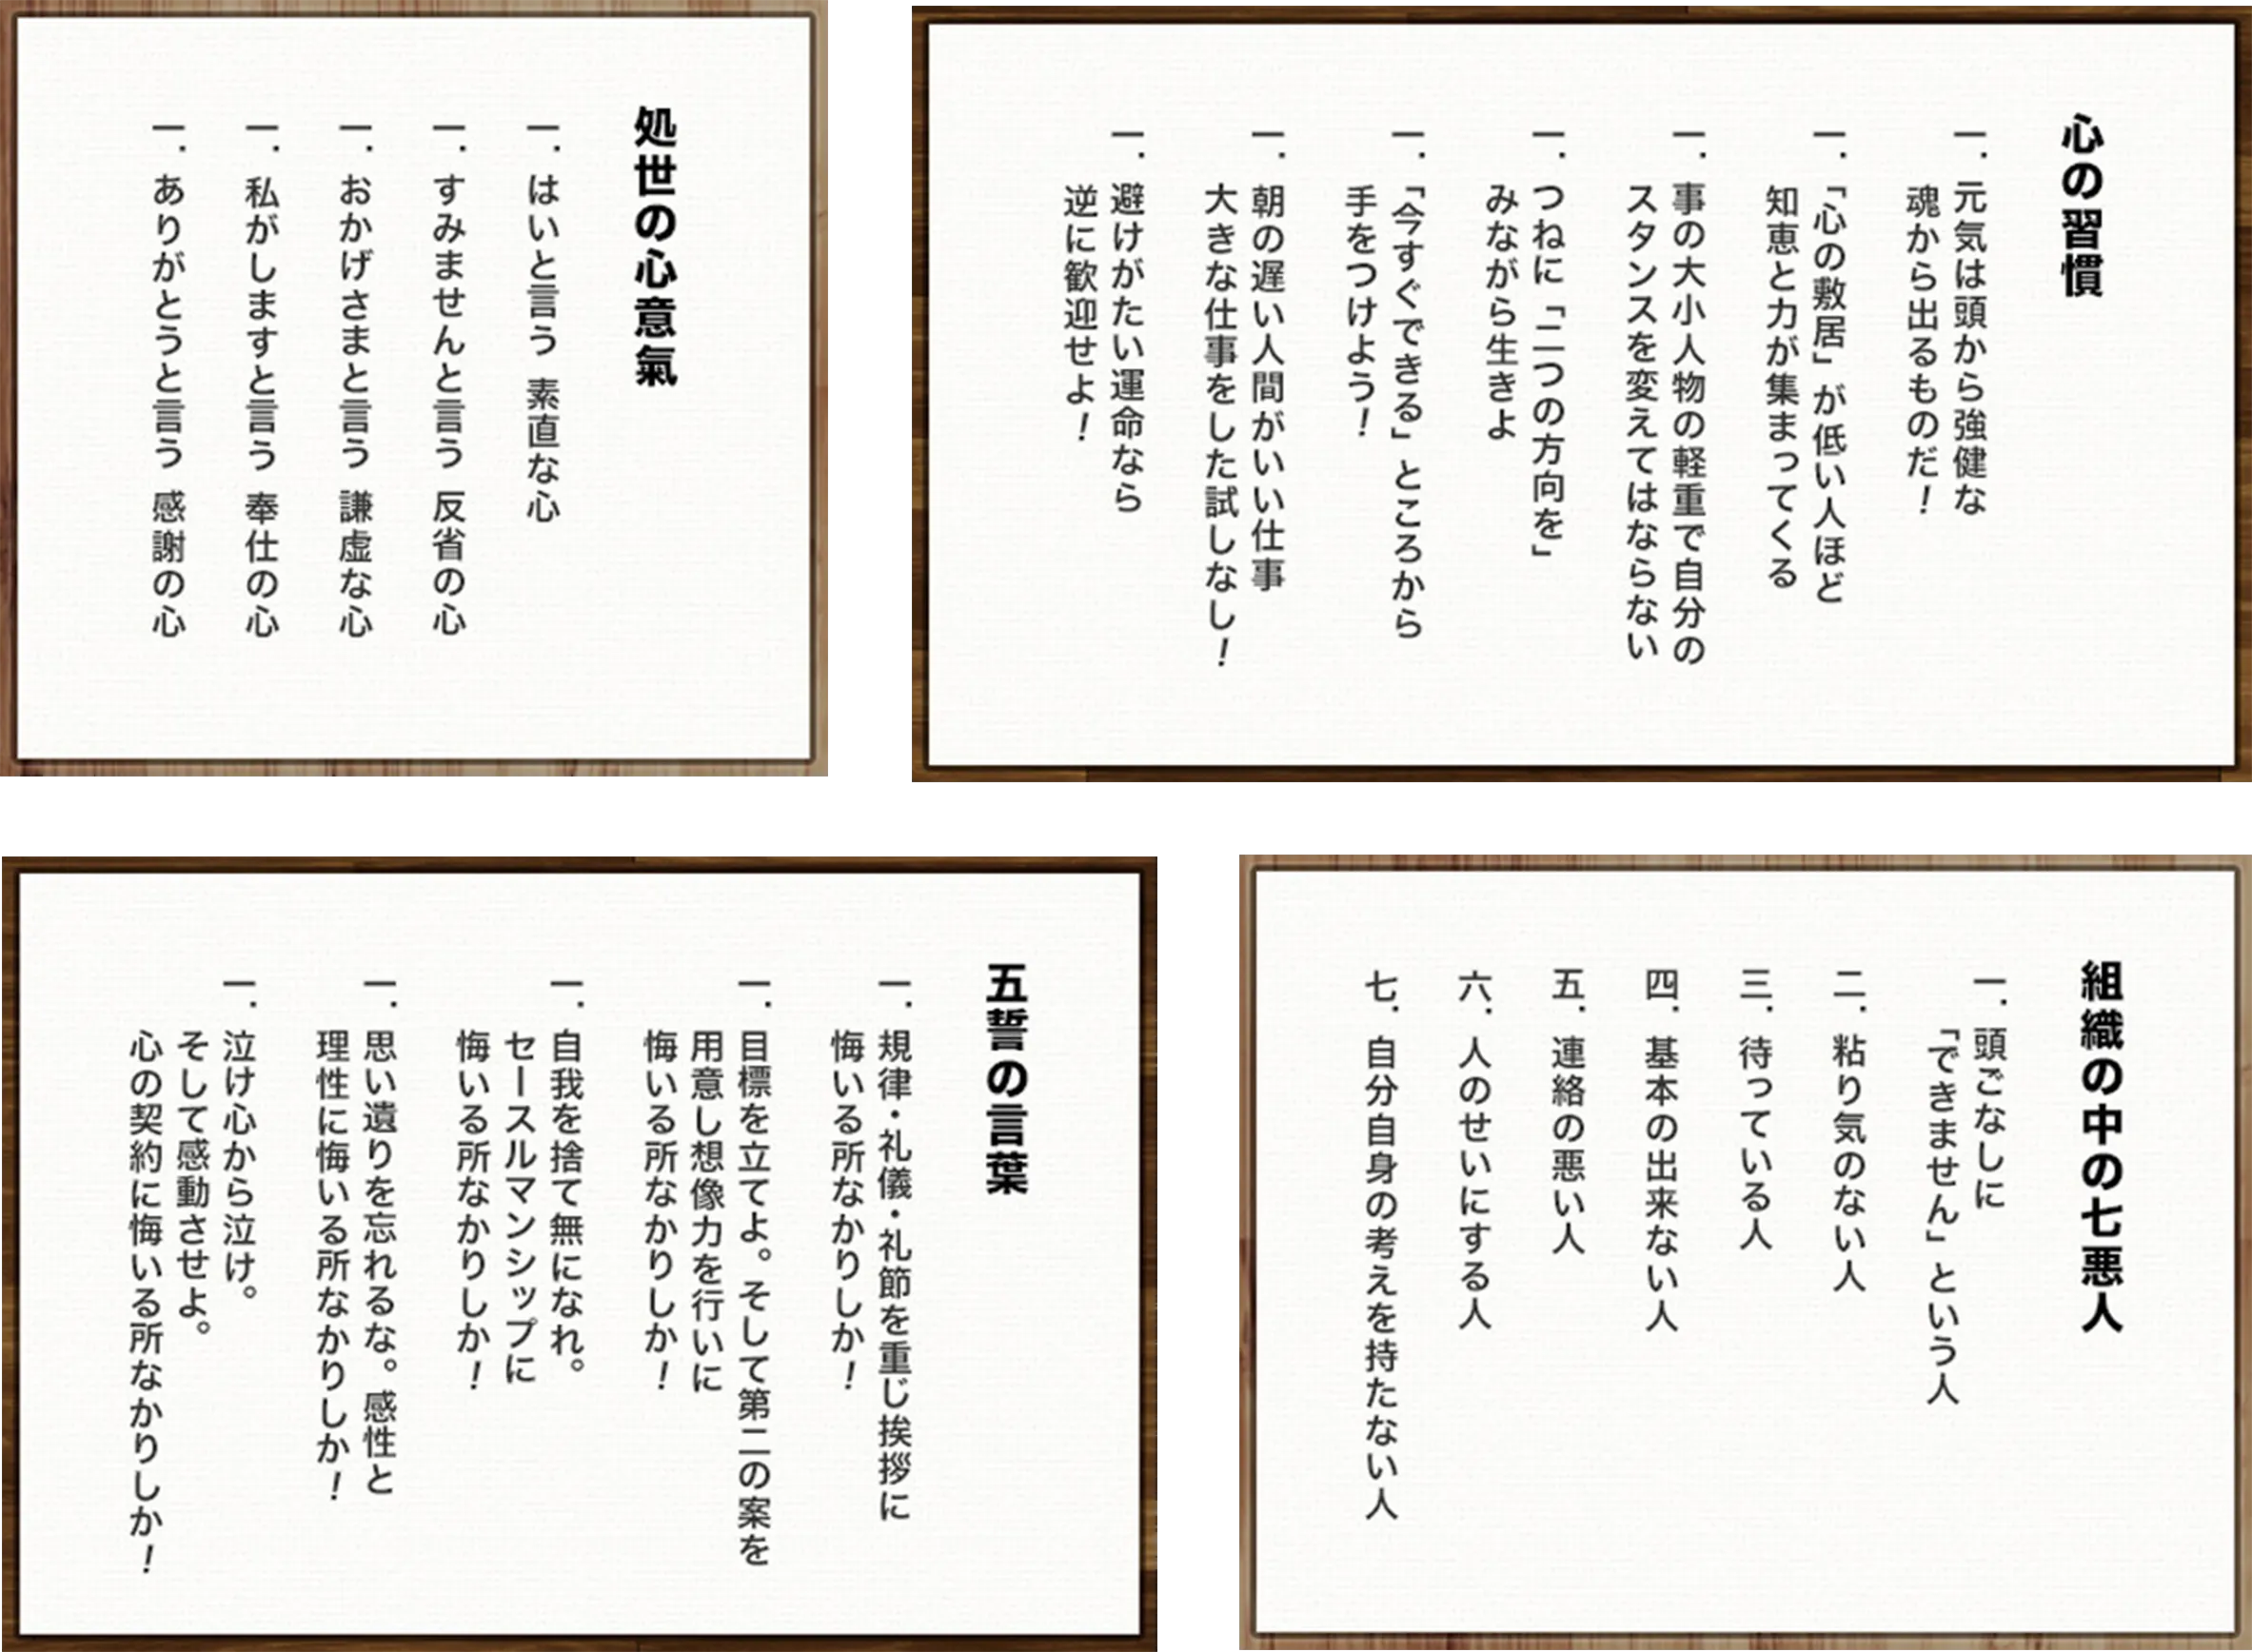 処世の心意氣
一．はいと言う 素直な心
一．すみませんと言う 反省の心
一．おかげさまと言う 謙虚な心
一．私がしますと言う 奉仕の心
一．ありがとうと言う 感謝の心
心の習慣
一．元気は頭から強健な
魂から出るものだ！
一．「心の敷居」が低い人ほど
知恵と力が集まってくる
一．事の大小人物の軽重で自分の
スタンスを変えてはならない
一．つねに「二つの方向を」
みながら生きよ
一．「今すぐできる」ところから
手をつけよう！
一．朝の遅い人間がいい仕事
大きな仕事をした試しなし！
一．避けがたい運命なら
逆に歓迎せよ！
五誓の言葉
一．規律・礼儀・礼節を重じ挨拶に
悔いる所なかりしか！
一．目標を立てよ。そして第二の案を
用意し想像力を行いに
悔いる所なかりしか！
一．自我を捨て無になれ。
セールスマンシップに
悔いる所なかりしか！
一．思い遺りを忘れるな。感性と
理性に悔いる所なかりしか！
一．泣け心から泣け。
そして感動させよ。
心の契約に悔いる所なかりしか！
組織の中の七悪人
一．頭ごなしに
「できません」という人
二．粘り気のない人
三．待っている人
四．基本の出来ない人
五．連絡の悪い人
六．人のせいにする人
七．自分自身の考えを持たない人